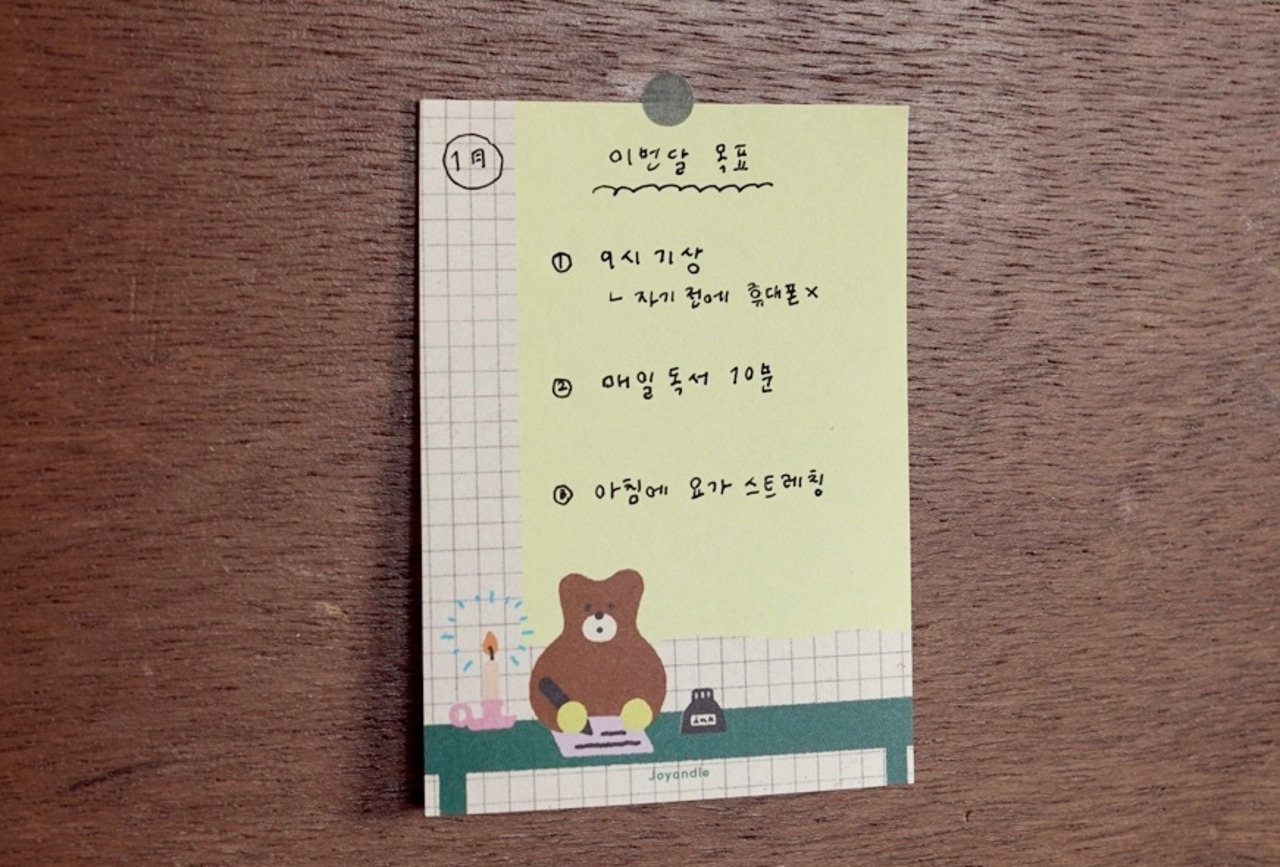 1月
이번달 목표
① 9시 기상
ㄴ 자기 전에 휴대폰 x
② 매일 독서 10분
③ 아침에 요가 스트레칭
ink
Joyandle